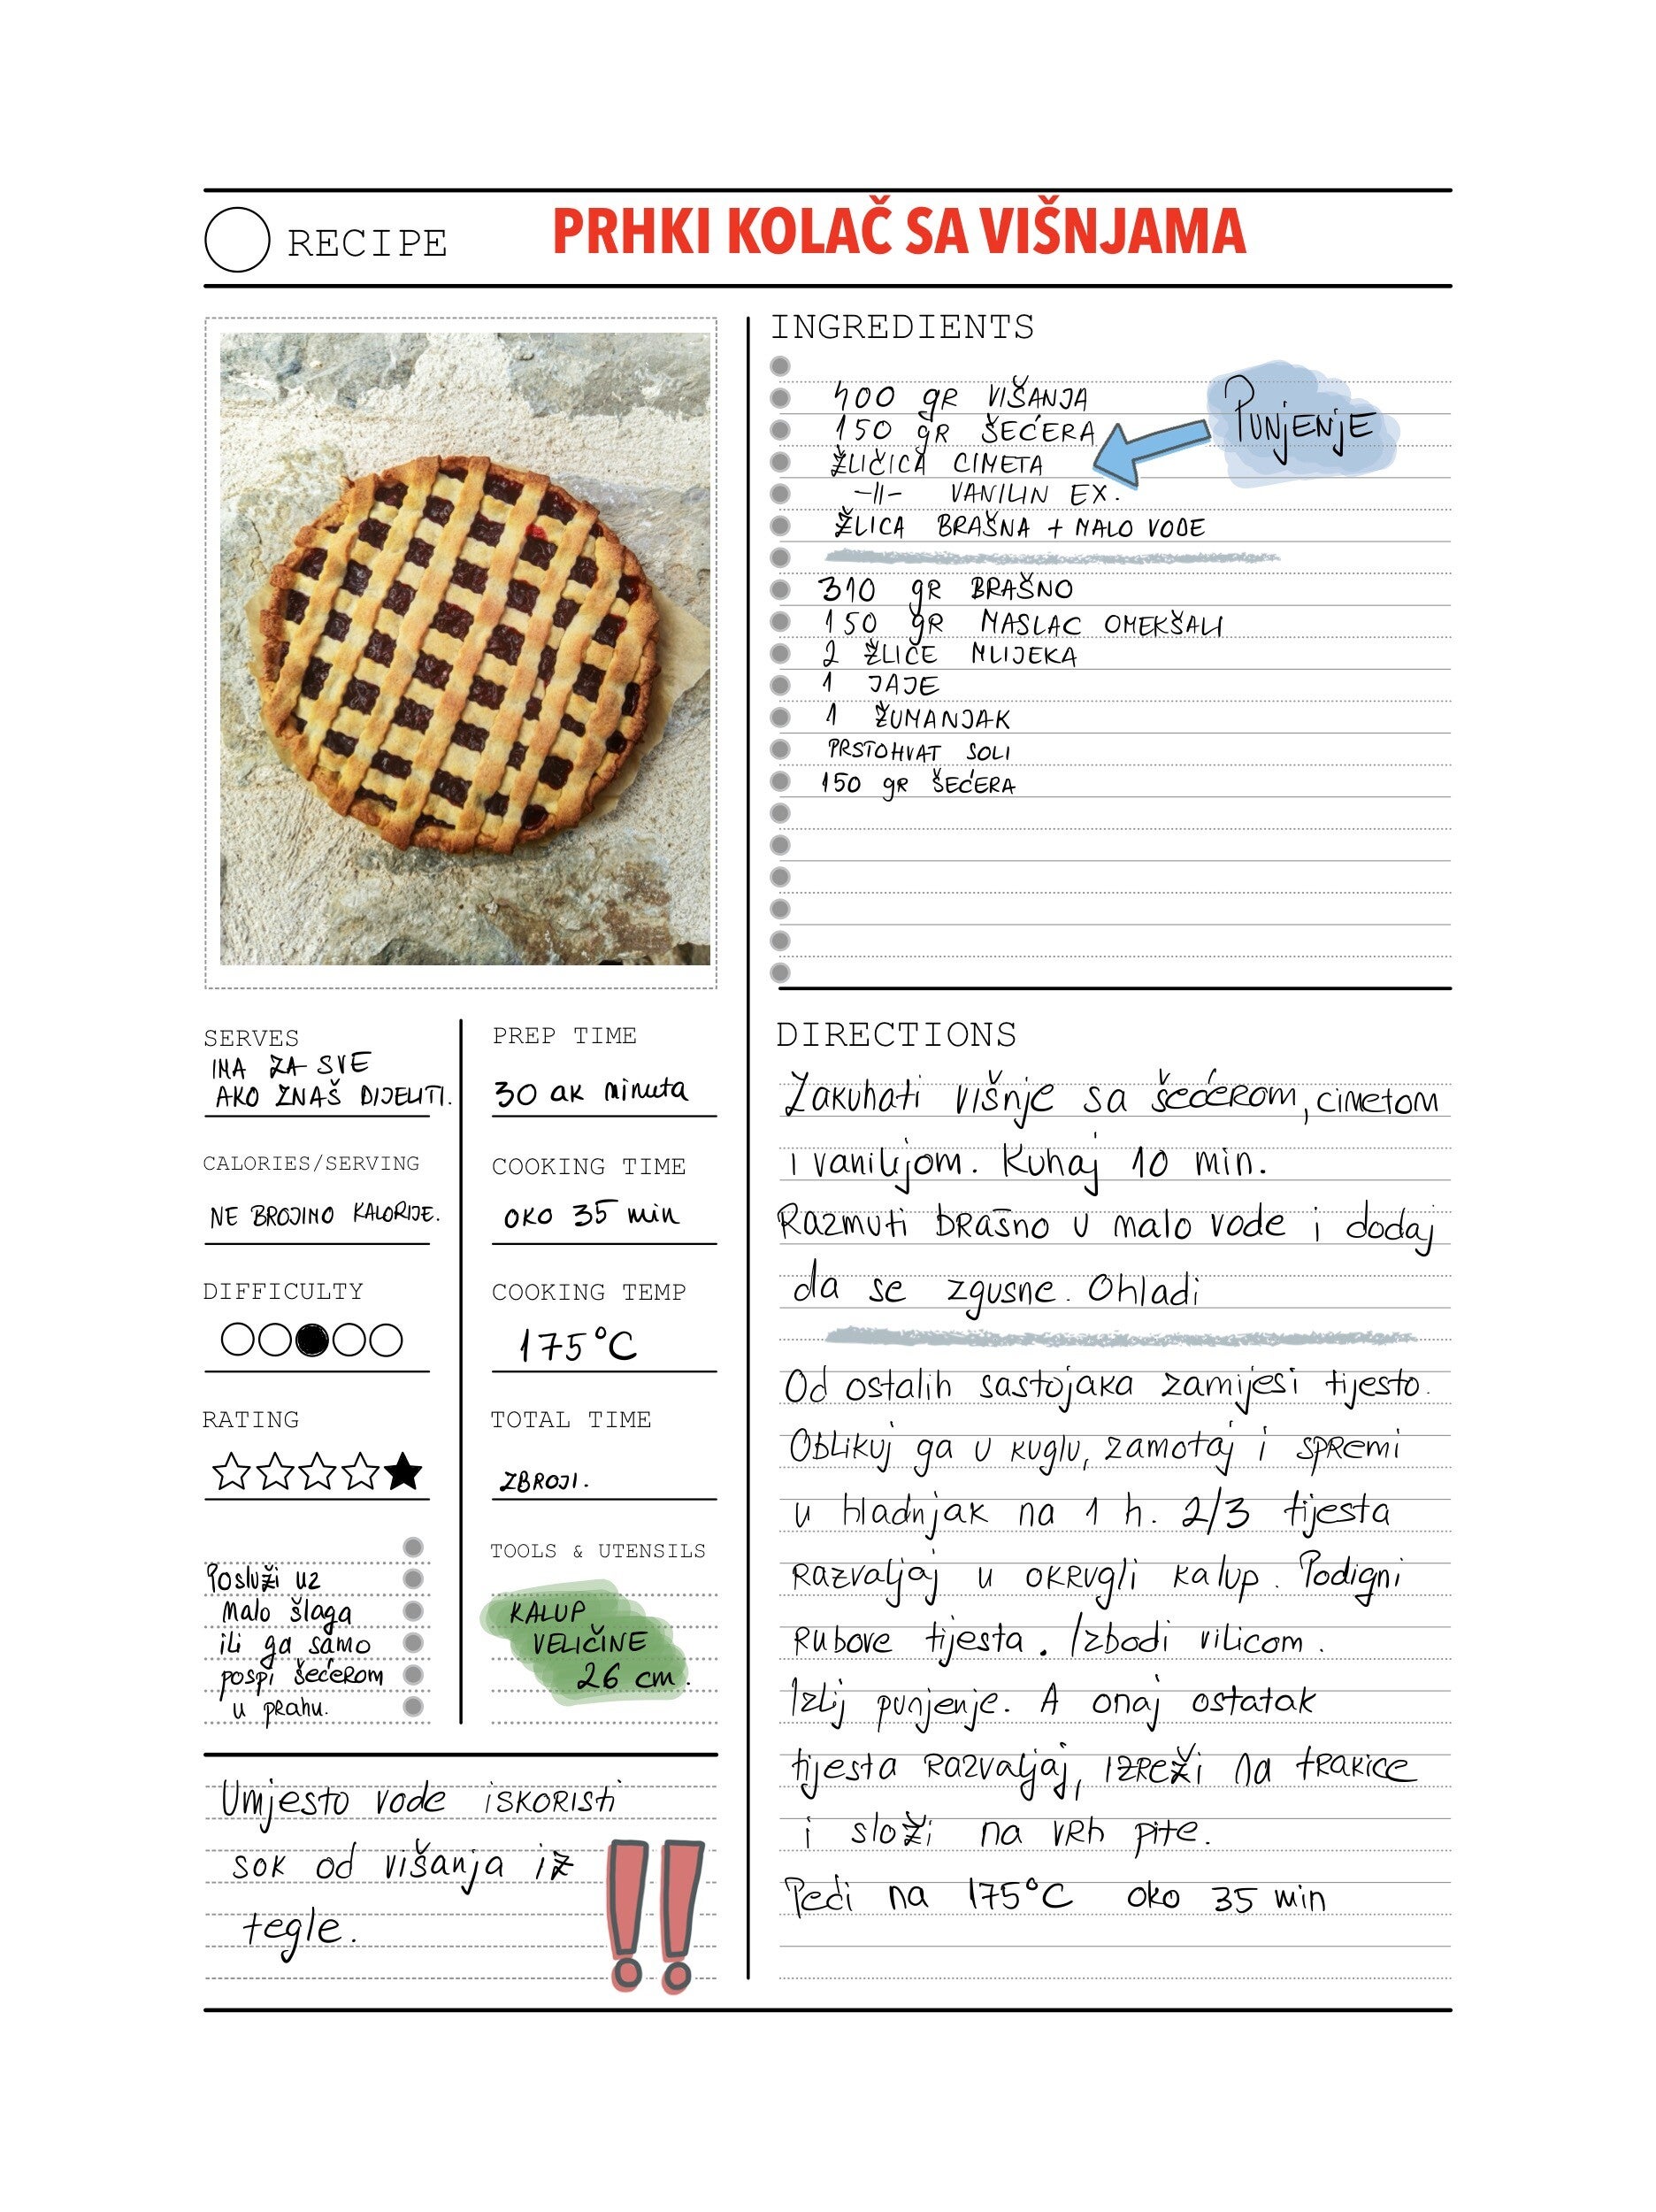 RECIPE
PRHKI KOLAČ SA VIŠNJAMA
INGREDIENTS
400 gR VIŠANJA
150 gR ŠEĆERA
ŽLIČICA CIMETA
-//- VANILIN EX.
ŽLICA BRAŠNA + MALO VODE
PUNJENJE
310 gR BRAŠNO
150 gR MASLAC OMEKŠALI
2 ŽLICE MLIJEKA
1 JAJE
1 ŽUMANJAK
PRSTOHVAT SOLI
150 gR ŠEĆERA
SERVES
IMA ZA SVE
AKO ZNAŠ DIJELITI.
CALORIES/SERVING
NE BROJIMO KALORIJE.
DIFFICULTY
RATING
Posluži uz
malo šlaga
ili ga samo
pospi šećerom
u prahu.
PREP TIME
30 ak minuta
COOKING TIME
oko 35 min
COOKING TEMP
175°C
TOTAL TIME
ZBROJI.
TOOLS & UTENSILS
KALUP
VELIČINE
26 cm.
Umjesto vode iskoristi
sok od višanja iz
tegle.
DIRECTIONS
Zakuhati višnje sa šećerom, cimetom
i vanilijom. Kuhaj 10 min.
Razmuti brašno u malo vode i dodaj
da se zgusne. Ohladi
Od ostalih sastojaka zamijesi tijesto.
Oblikuj ga u kuglu, zamotaj i spremi
u hladnjak na 1 h. 2/3 tijesta
Razvaljaj u okrugli kalup. Podigni
Rubove tijesta. Izbodi vilicom.
Izlij punjenje. A onaj ostatak
tijesta razvaljaj, izreži na trakice
i složi na vrh pite.
Peći na 175°C oko 35 min